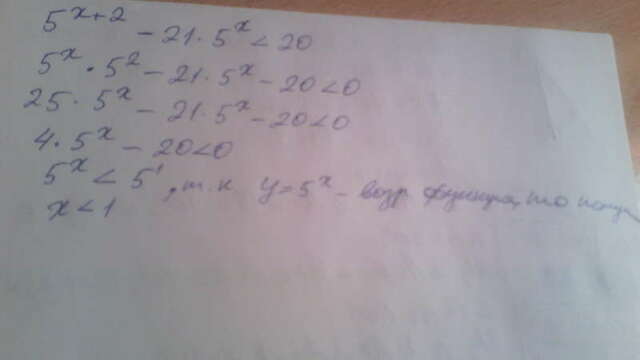 5^{x+2} - 21·5^x < 20
5^x · 5^2 - 21·5^x - 20 < 0
25·5^x - 21·5^x - 20 < 0
4·5^x - 20 < 0
5^x < 5^1, т.к y = 5^x - возр функция, то
x < 1